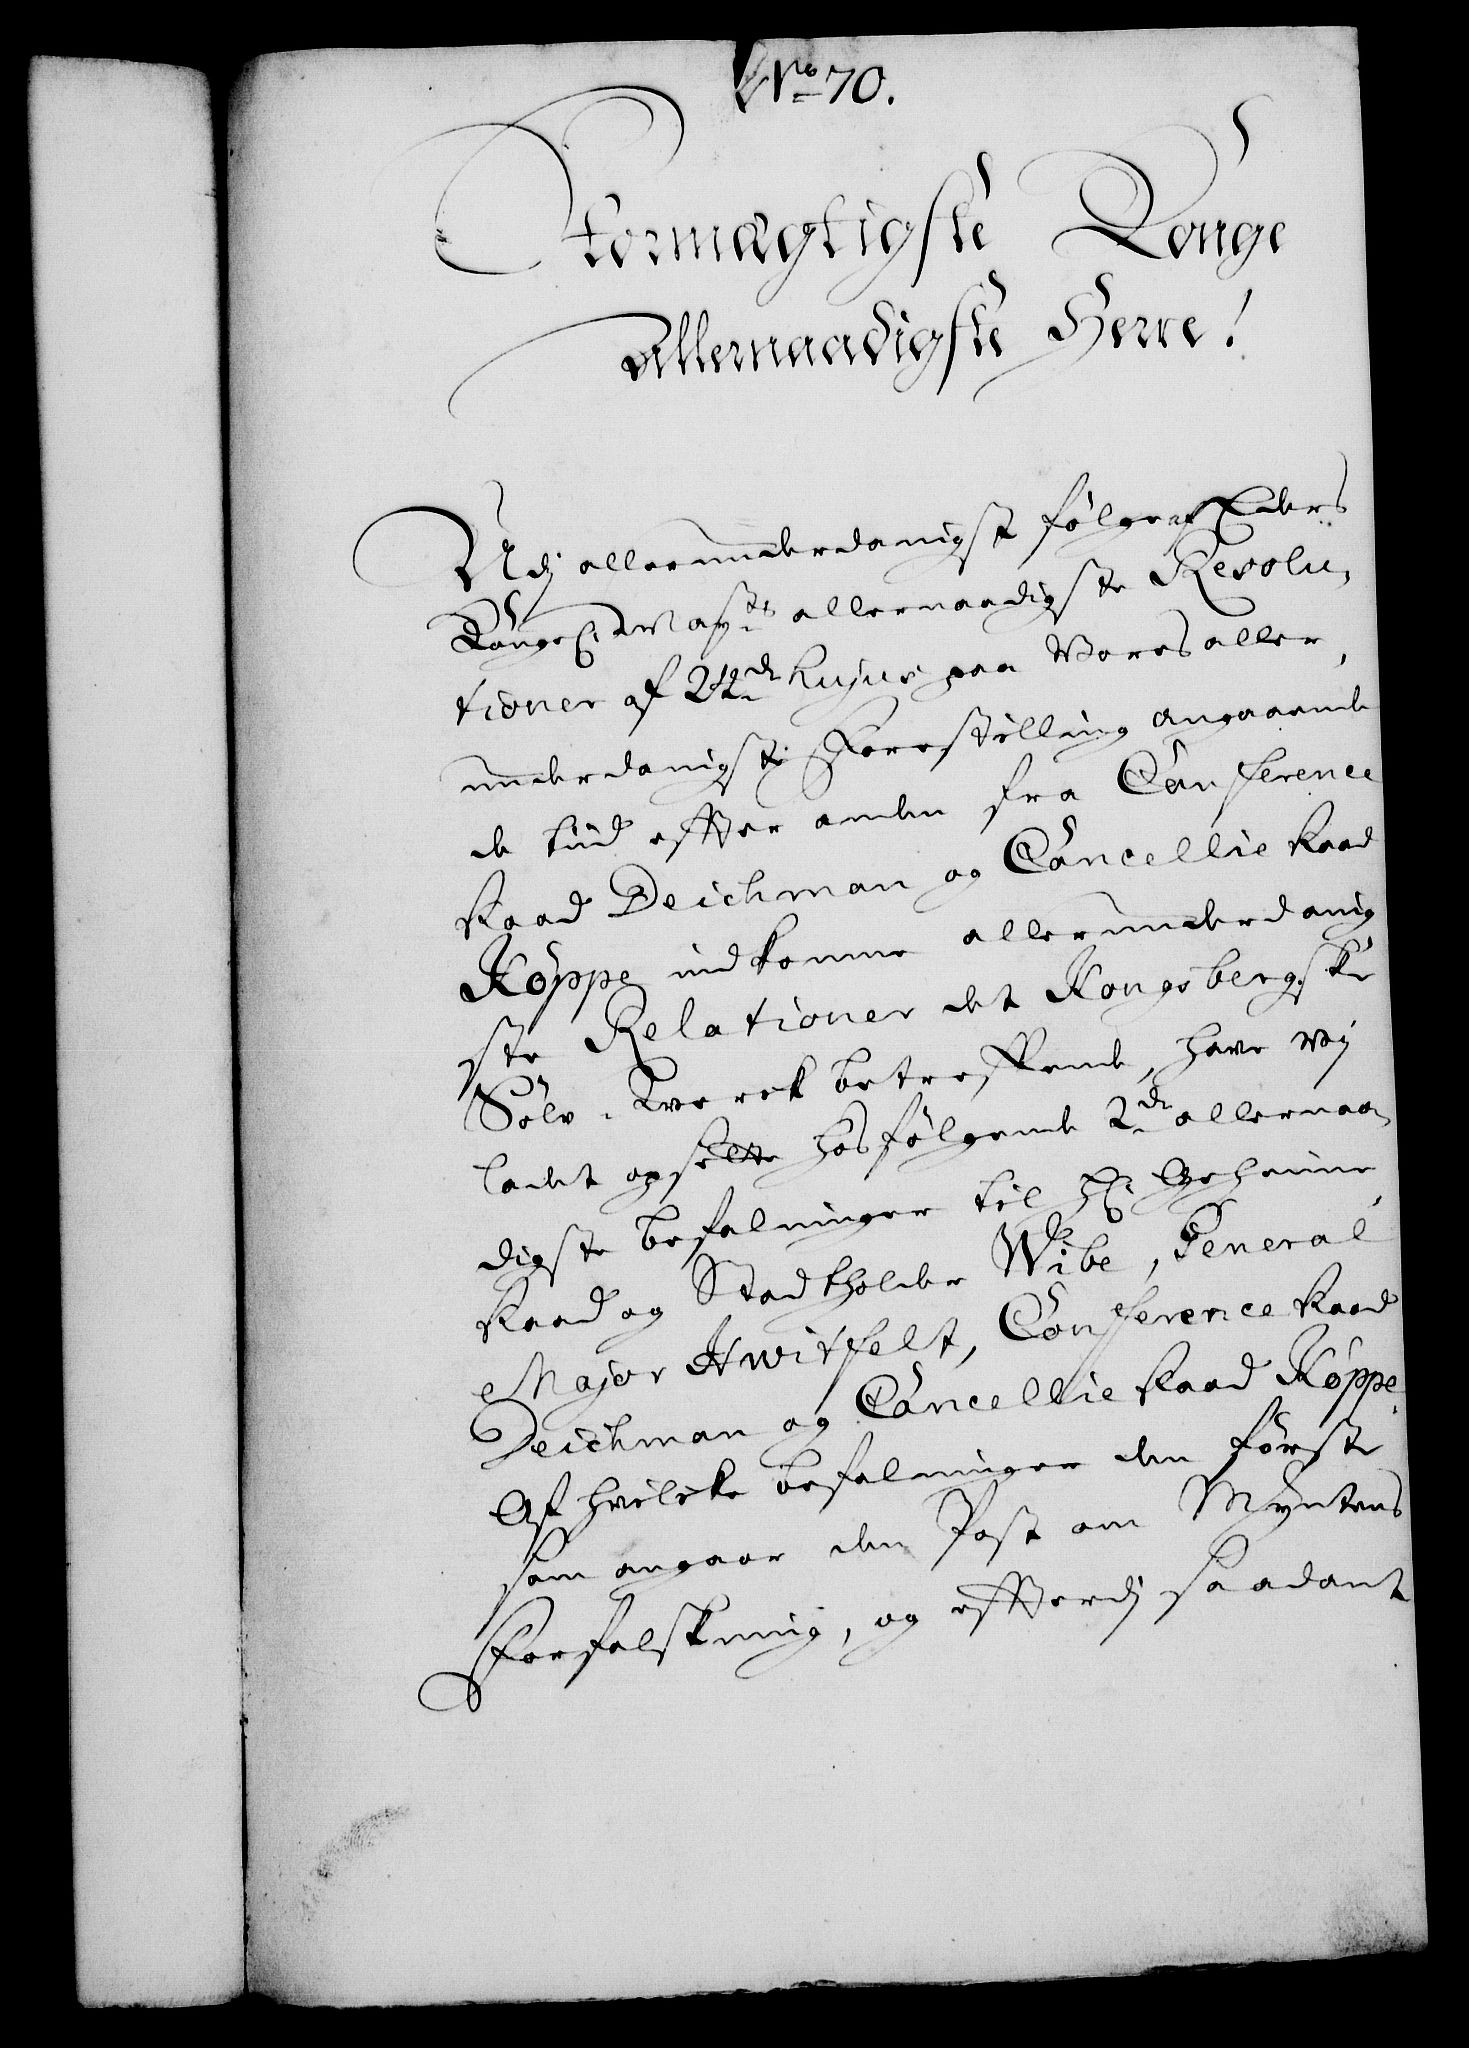 No 70.
Stormægtigste Konge
Allernaadigste Herre!
Udj allerunderdanigst følge af Eders
Kongel: Mayts allernaadigste Resolu,
tioner af 24de hujus paa Vores aller,
underdanigste Forestilling angaaende
de tiid effter anden fra Conference
Raad Deichman og Cancellie Raad
Köppe indkomne allerunderdanig
ste Relationer det Kongsbergske
Sölv-Werck betreffende, have vij
ladet opsette hosfølgende 2de allernaa,
digste befalninger til H: Geheime,
Raad og Stadtholder Wibe, General
Major Hwitfelt, Conference Raad
Deichman og Cancellie Raad Köppe.
Af hvilcke befalninger den første
som angaar den Post om Myntens
Forfalskning, og efftterdj saadant